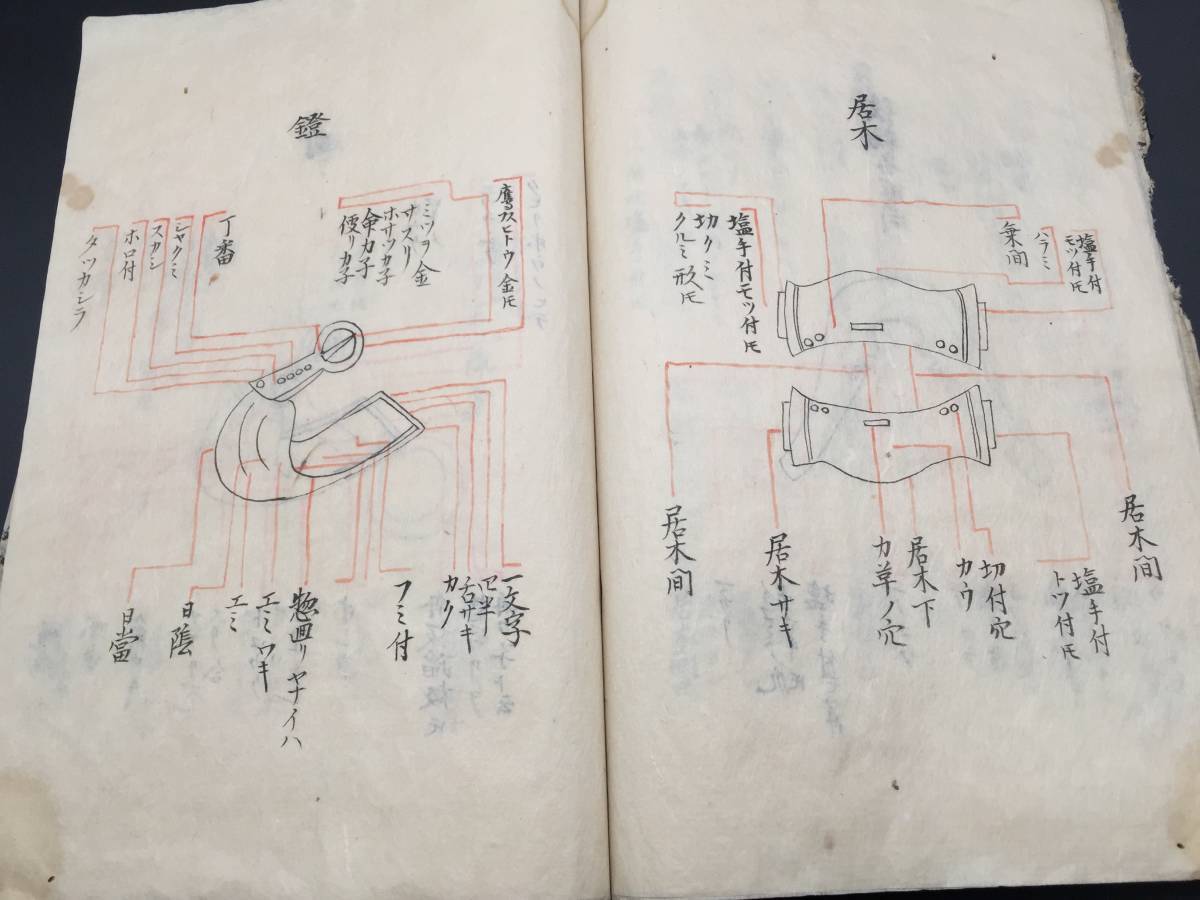 居木
塩手付
モツ付圧
ハラミ
乗間
塩手付モツ付圧
切クミ
クルミ形圧
居木間
塩手付
トツ付圧
切付穴
カウ
居木下
力草ノ穴
居木サキ
居木間
鐙
ミツヲ金
サスリ
ホサツカ子
傘カ子
便リカ子
丁番
シャクミ
スカシ
ホロ付
タツカシラ
一文字
舌サキ
カク
フミ付
惣囬リヤナイハ
エミワキ
エミ
日陰
日當